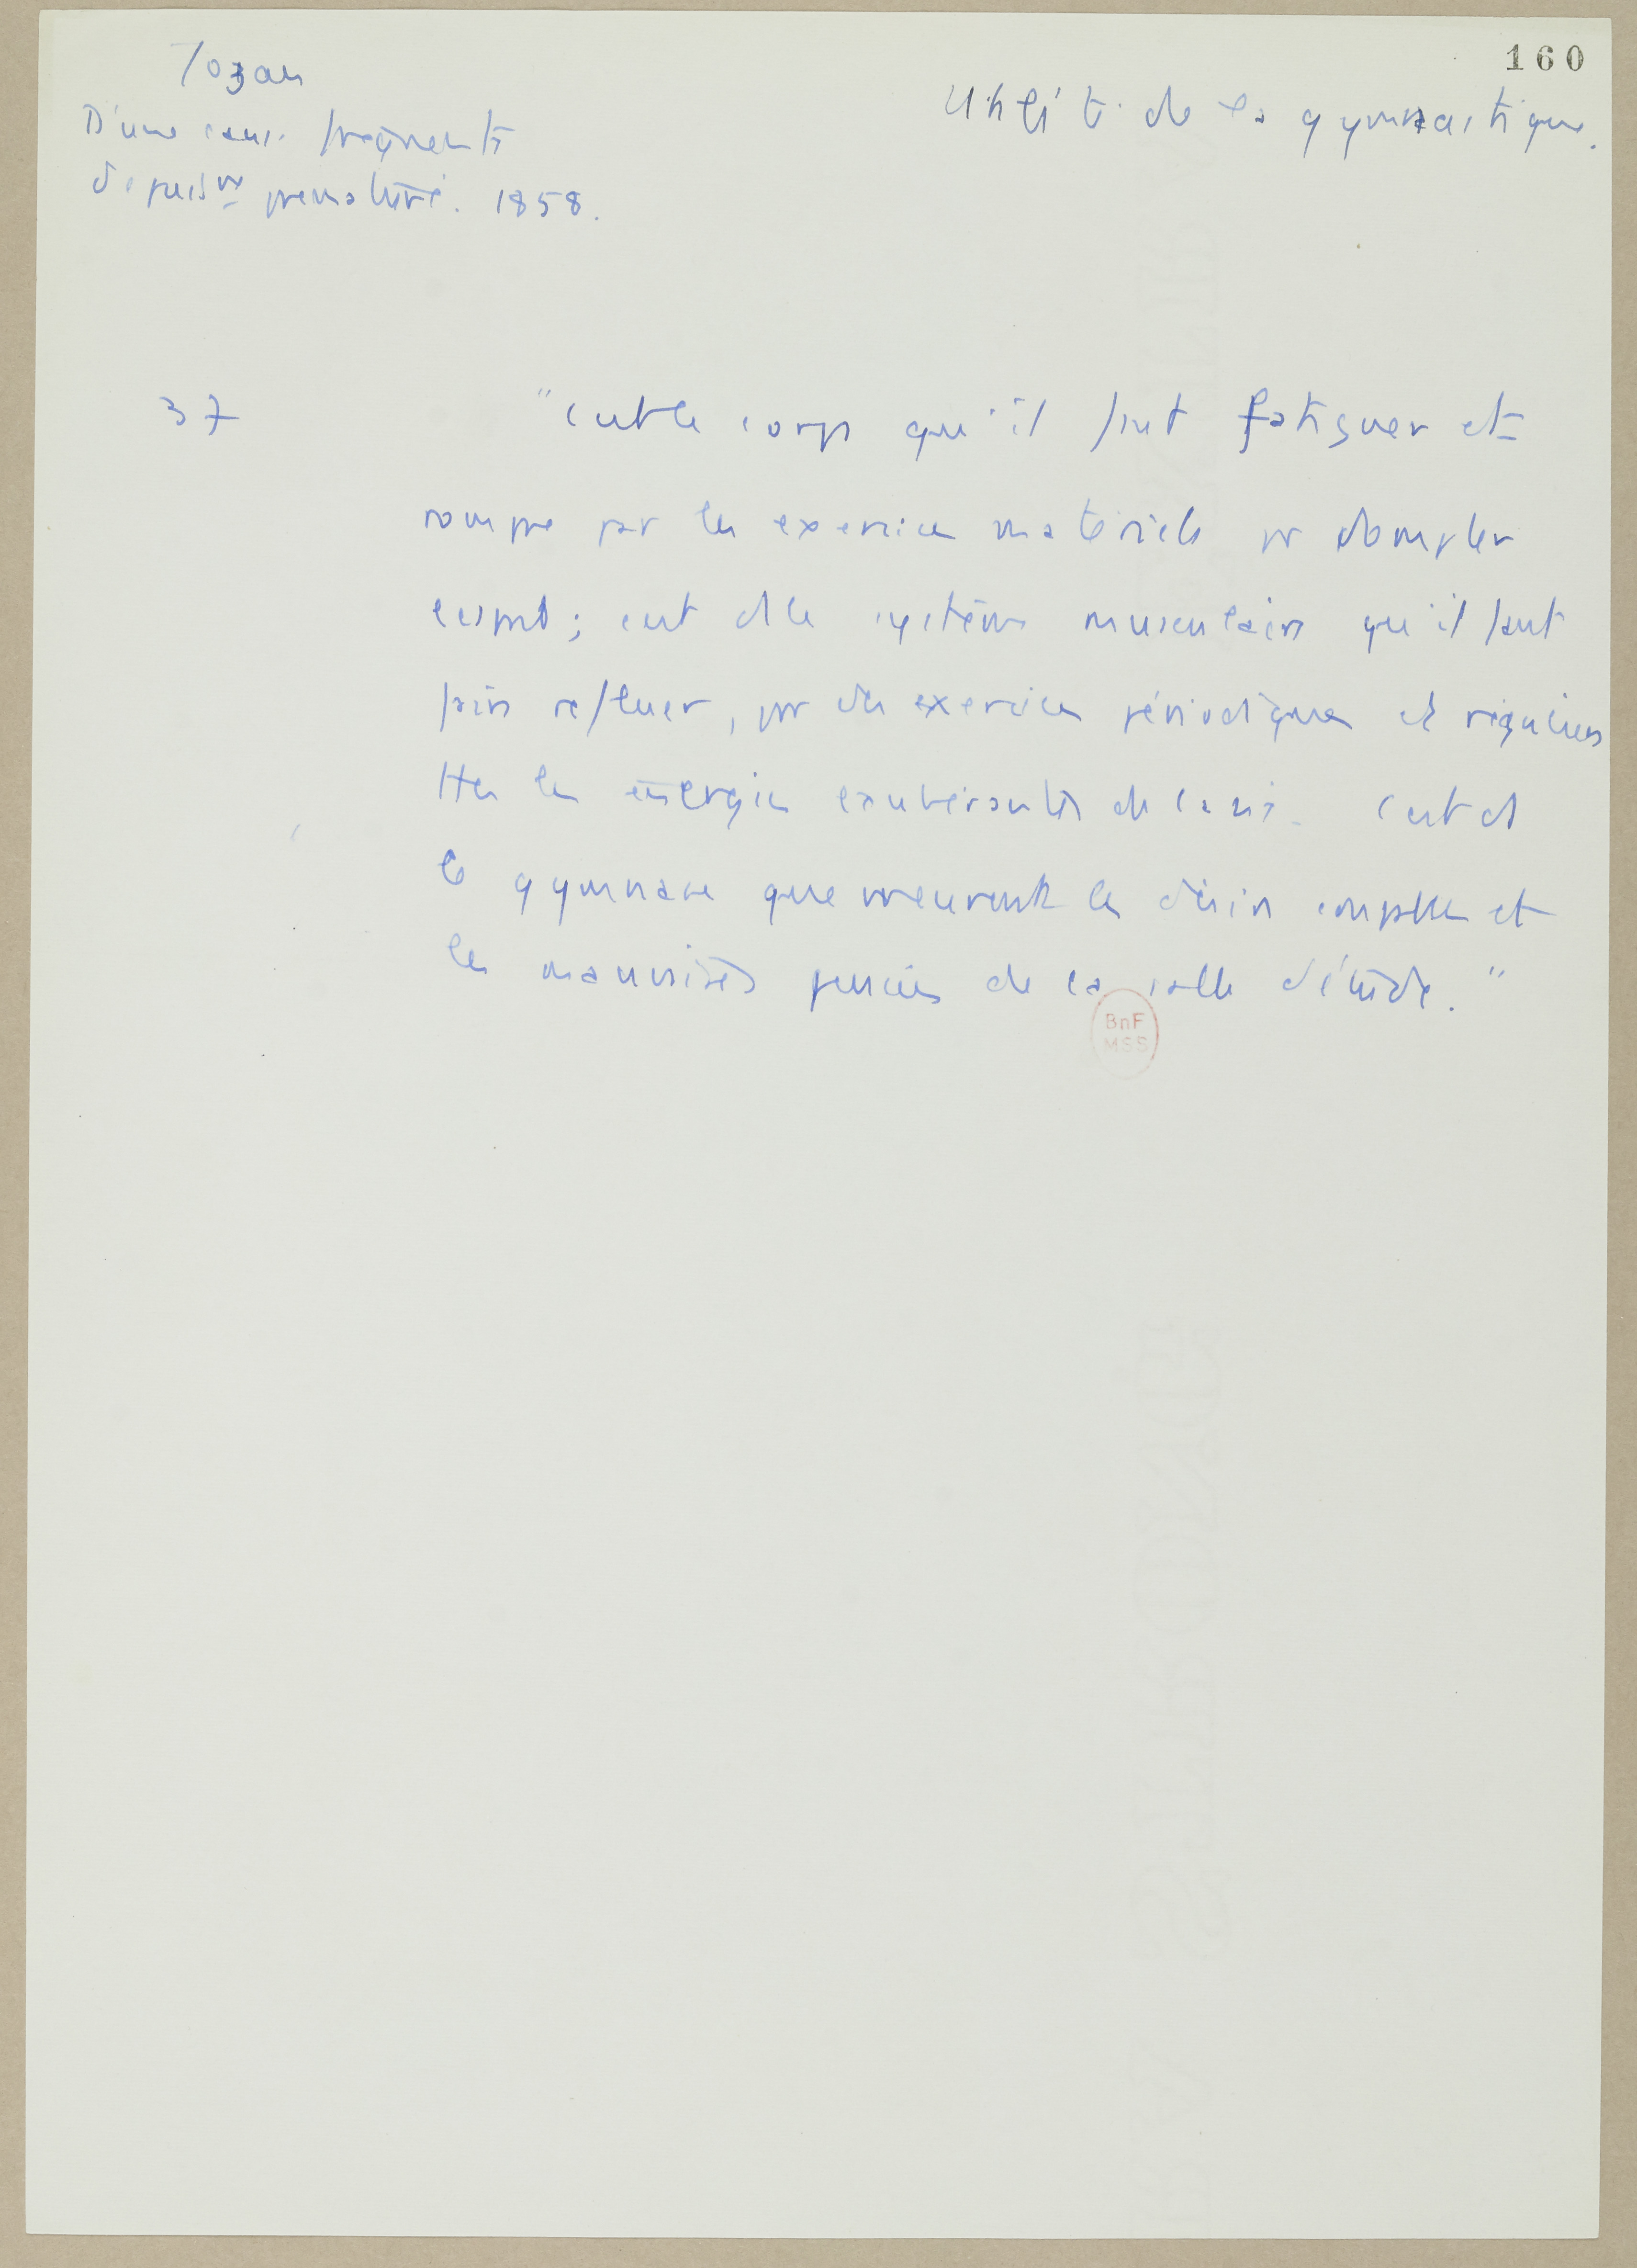 160
Jozan
D'une cause fréquente
d'épuis^nt prématuré. 1858.
Utilité de la gymnastique.
37
"C'est le corps qu'il faut fatiguer et
rompre par les exercices matériels pr dompter
l'esprit; c'est ds le système musculaire qu'il faut
faire refluer, par des exercices périodiques et réguliers
ttes les énergies exubérantes de la vie. C'est ds
le gymnase que meurent les désirs coupables et
les mauvaises pensées de la salle d'étude."
BnF
MSS